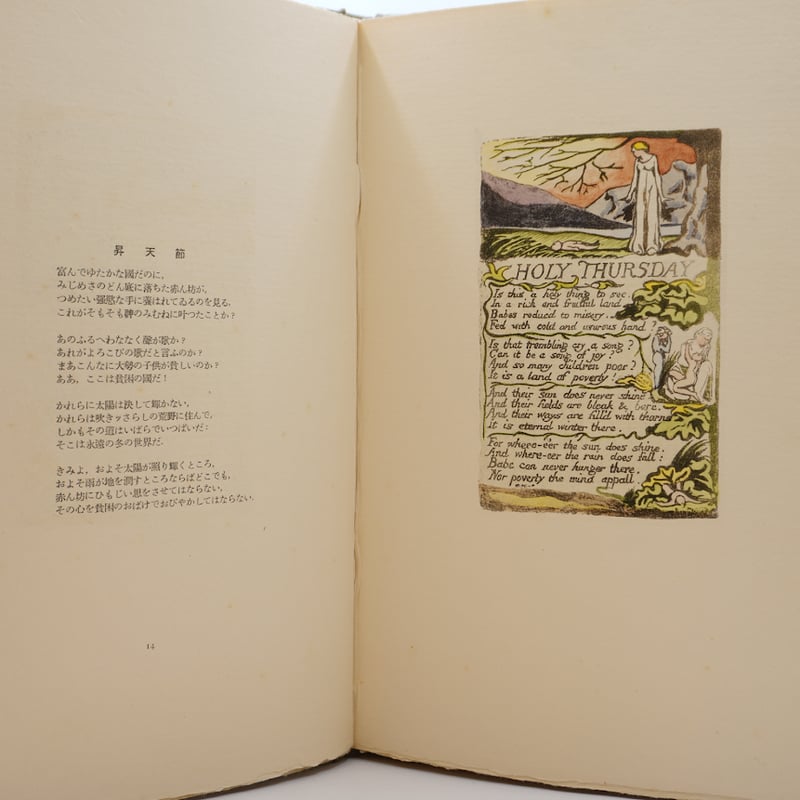 昇天節
富んでゆたかな國だのに,
みじめさのどん底に落ちた赤ん坊が,
つめたい强慾な手に養はれてゐるのを見る,
これがそもそも神のみむねに叶つたことか?
あのふるへわななく聲が歌か?
あれがよろこびの歌だと言ふのか?
まあこんなに大勢の子供が貧しいのか?
ああ, ここは貧困の國だ!
かれらに太陽は決して輝かない,
かれらは吹きッさらしの荒野に住んで,
しかもその道はいばらでいつぱいだ:
そこは永遠の冬の世界だ.
きみよ, およそ太陽が照り輝くところ,
およそ雨が地を潤すところならばどこでも,
赤ん坊にひもじい思をさせてはならない,
その心を貧困のおばけでおびやかしてはならない.
14
HOLY THURSDAY
Is this a holy thing to see.
In a rich and fruitful land
Babes reduced to misery.
Fed with cold and usurous hand?
Is that trembling cry a song?
Can it be a song of joy?
And so many children poor?
It is a land of poverty!
And their sun does never shine
And their fields are bleak & bare.
And their ways are fill'd with thorns
It is eternal winter there.
For where-e'er the sun does shine.
And where-e'er the rain does fall:
Babe can never hunger there.
Nor poverty the mind appall.